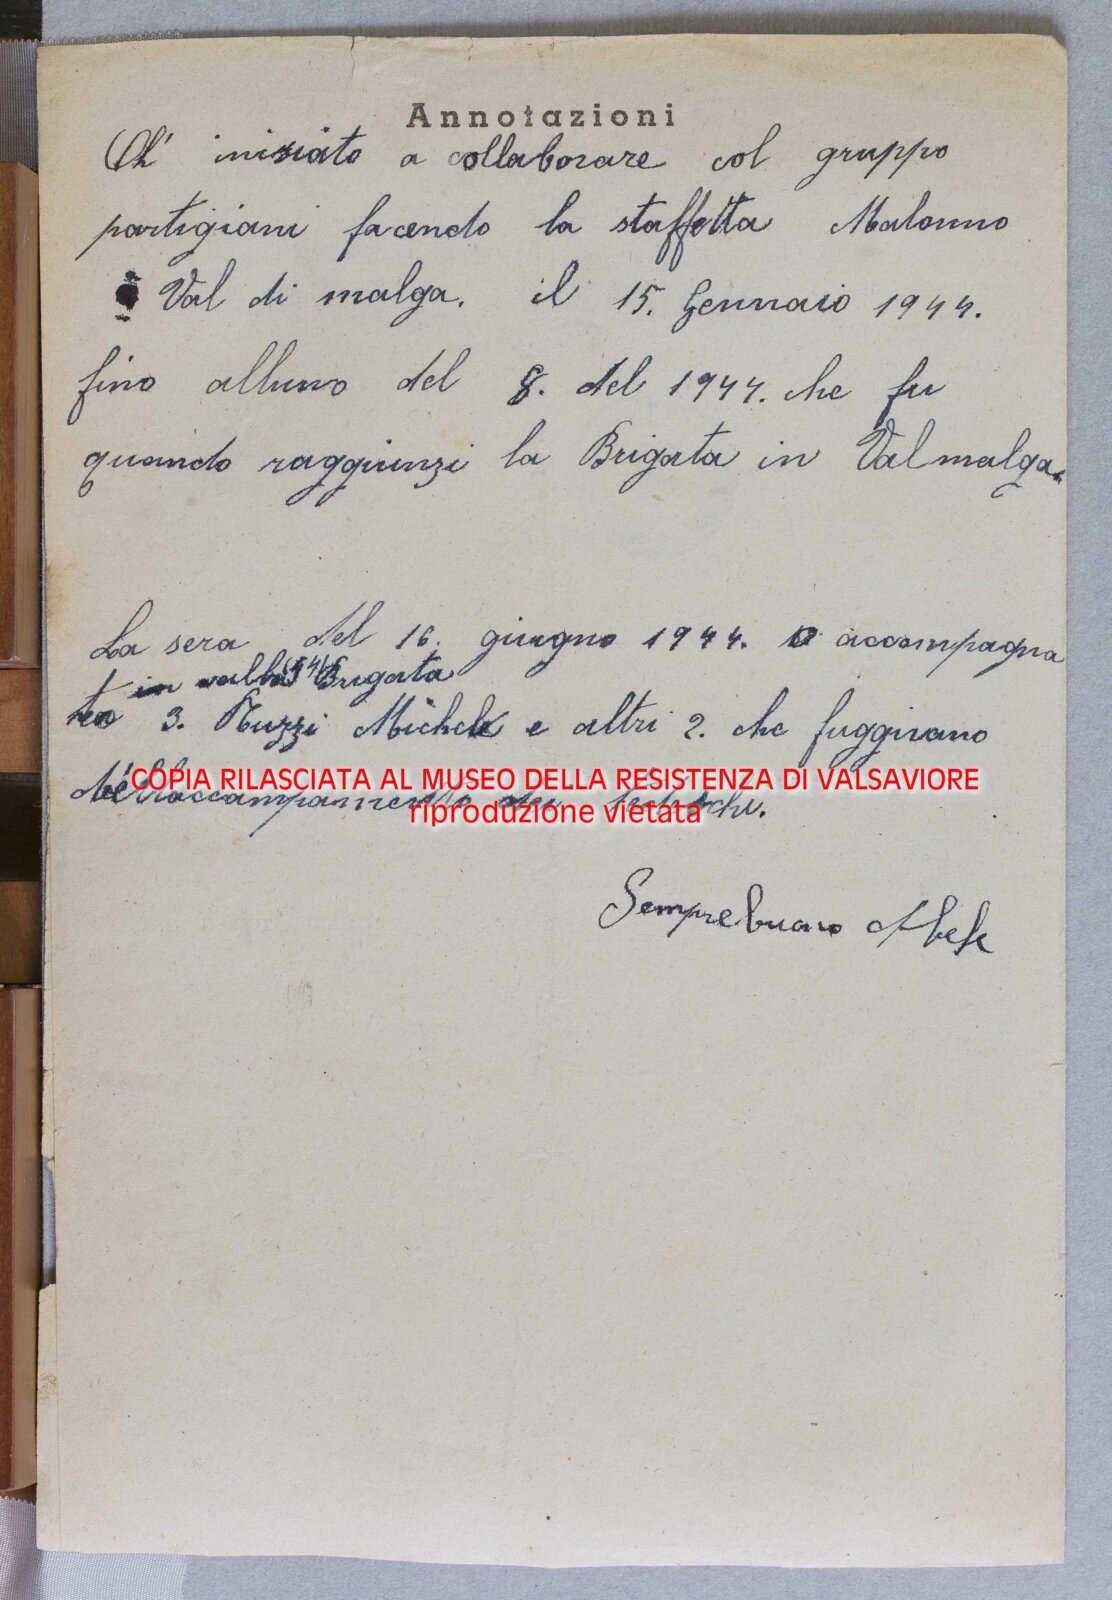 Annotazioni
Oh' iniziato a collaborare col gruppo
partigiani facendo la staffetta Malonno
Val di malga. il 15. Gennaio 1944.
fino alluno del 8. del 1944. che fu
quando raggiunzi la Brigata in Valmalga.
La sera del 16. giugno 1944. o accompagna
to in valla 54 Brigata
3. Nuzzi Michele e altri 2. che fuggivano
dellaccampamento dei tedeschi.
COPIA RILASCIATA AL MUSEO DELLA RESISTENZA DI VALSAVIORE
riproduzione vietata
Semprebuono Abele